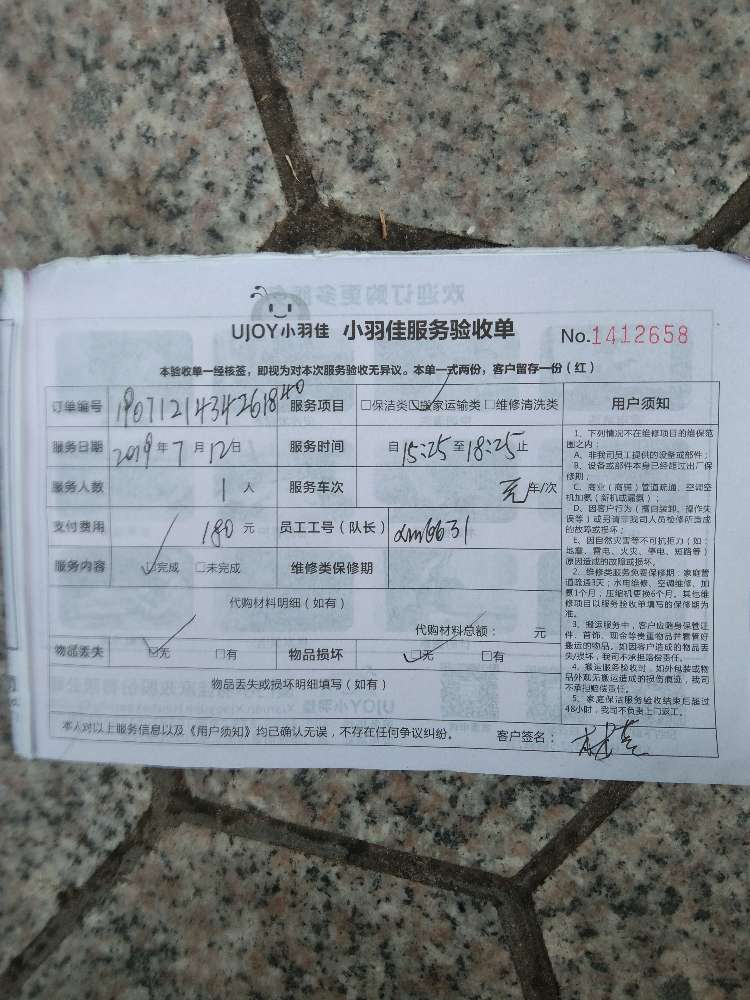 UJOY小羽佳 小羽佳服务验收单 No.1412658
本验收单一经核签，即视为对本次服务验收无异议。本单一式两份，客户留存一份（红）
订单编号 1907121434261840 服务项目 □保洁类☑搬家运输类 □维修清洗类 用户须知
服务日期 2019 年 7 月 12 日 服务时间 自 15:25 至 18:25 止
服务人数 1 人 服务车次 车/次
支付费用 180 元 员工工号（队长） xm6631
服务内容 ☑完成 □未完成 维修类保修期
代购材料明细（如有）
代购材料总额： 元
物品丢失 ☑无 □有 物品损坏 ☑无 □有
物品丢失或损坏明细填写（如有）
本人对以上服务信息以及《用户须知》均已确认无误，不存在任何争议纠纷。 客户签名：
1、下列情况不在维修项目的维保范
围之内：
A、非我司员工提供的设备或部件；
B、设备或部件本身已经超过出厂保
修期；
C、商业（商铺）管道疏通、空调空
机加氟（新机或漏氟）；
D、因客户行为（擅自装卸、操作失
误等）或另请非我司人员检修所造成
的故障或损坏；
E、因自然灾害等不可抗拒力（如：
地震、雷电、火灾、停电、短路等）
原因造成的故障或损坏。
2、维修类服务免费保修期：家庭管
道疏通3天；水电维修、空调维修、加
氟1个月，压缩机更换6个月。其他维
修项目以服务验收单填写的保修期为
准。
3、搬运服务中，客户应随身保管证
件、首饰、现金等贵重物品并看管好
搬运的物品。如因客户造成的物品丢
失/损坏，我司不承担赔偿责任。
4、搬运服务验收时，如外包装或物
品外观无搬运造成的损伤痕迹，我司
不承担赔偿责任。
5、家庭保洁服务验收结束后超过
48小时，我司不负责上门返工。